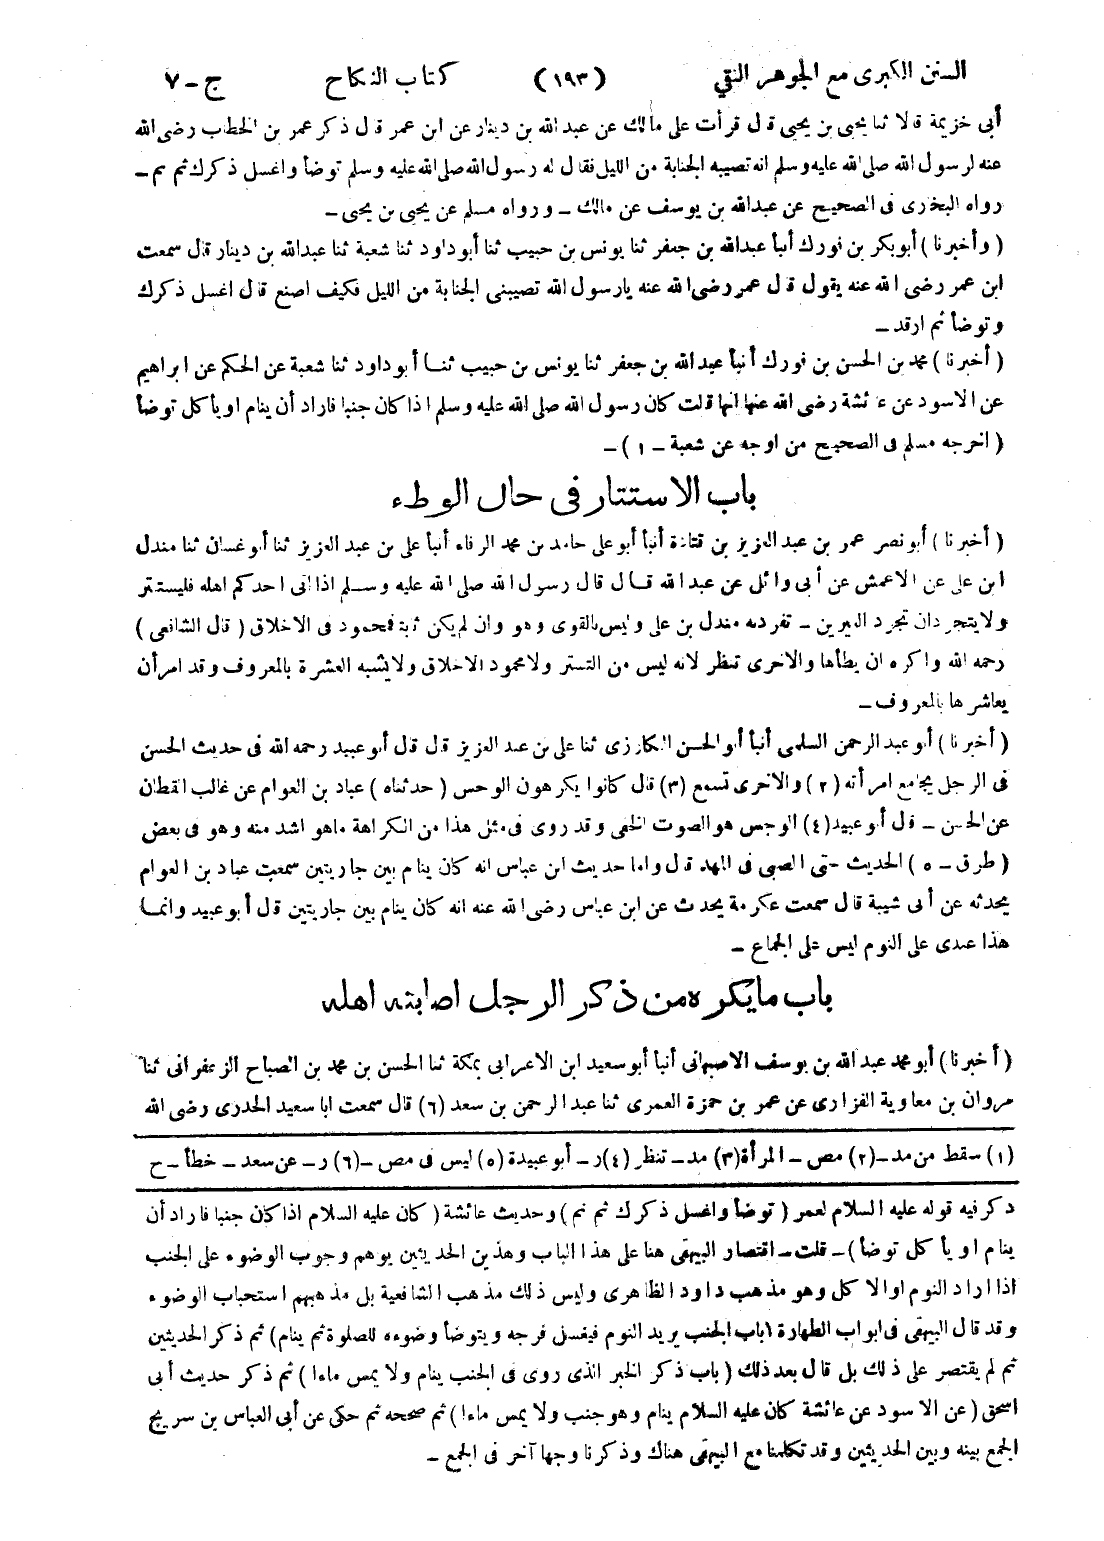 السنن الكبرى مع الجوهر النقي (١٩٣) كتاب النكاح ج - ٧
أبى خزيمة قالا ثنا يحيى بن يحيى قال قرأت على مالك عن عبد الله بن دينار عن ابن عمر قال ذكر عمر بن الخطاب رضى الله
عنه لرسول الله صلى الله عليه وسلم انه تصيبه الجنابة من الليل فقال له رسول الله صلى الله عليه وسلم توضأ واغسل ذكرك ثم نم -
رواه البخارى فى الصحيح عن عبدالله بن يوسف عن مالك - ورواه مسلم عن يحيى بن يحيى -
( وأخبرنا ) أبوبكر بن فورك أنبأ عبدالله بن جعفر ثنا يونس بن حبيب ثنا أبوداود ثنا شعبة ثنا عبدالله بن دينار قال سمعت
ابن عمر رضى الله عنه يقول قال عمر رضى الله عنه يارسول الله تصيبنى الجنابة من الليل فكيف اصنع قال اغسل ذكرك
وتوضأ ثم ارقد -
( أخبرنا ) محمد بن الحسن بن فورك أنبأ عبد الله بن جعفر ثنا يونس بن حبيب ثنا أبوداود ثنا شعبة عن الحكم عن ابراهيم
عن الاسود عن عائشة رضى الله عنها انها قالت كان رسول الله صلى الله عليه وسلم اذا كان جنبا فاراد أن ينام اويأكل توضأ
( اخرجه مسلم فى الصحيح من اوجه عن شعبة - ١ ) -
باب الاستتار فى حال الوطء
( أخبرنا ) أبونصر عمر بن عبد العزيز بن قتادة أنبأ أبو على حامد بن محمد الرفاء أنبأ على بن عبد العزيز ثنا أبوغسان ثنا مندل
ابن على عن الاعمش عن أبى وائل عن عبد الله قال قال رسول الله صلى الله عليه وسلم اذا اتى احدكم اهله فليستتر
ولايتجردان تجرد العيرين - تفرد به مندل بن على وليس بالقوى وهو وان لم يكن ثابتا فمحمود فى الاخلاق ( قال الشافعى )
رحمه الله واكره ان يطأها والاخرى تنظر لانه ليس من التستر ولامحمود الاخلاق ولايشبه العشرة بالمعروف وقد امرأن
يعاشرها بالمعروف -
( أخبرنا ) أبوعبد الرحمن السلمى أنبأ أبوالحسن الكارزى ثنا على بن عبد العزيز قال قال أبوعبيد رحمه الله فى حديث الحسن
فى الرجل يجامع امرأته ( ٢ ) والاخرى تسمع (٣) قال كانوا يكرهون الوجس ( حدثناه ) عباد بن العوام عن غالب القطان
عن الحسن - قال أبوعبيد(٤) الوجس هو الصوت الخفى وقد روى فى مثل هذا من الكراهة ماهو اشد منه وهو فى بعض
( طرق - ٥ ) الحديث حتى الصبى فى المهد قال واما حديث ابن عباس انه كان ينام بين جاريتين سمعت عباد بن العوام
يحدثه عن أبى شيبة قال سمعت عكرمة يحدث عن ابن عباس رضى الله عنه انه كان ينام بين جاريتين قال أبوعبيد وانما
هذا عندى على النوم ليس على الجماع -
باب مايكره من ذكر الرجل اصابته اهله
( أخبرنا ) أبو محمد عبد الله بن يوسف الاصبهانى أنبأ أبوسعيد ابن الاعرابى بمكة ثنا الحسن بن محمد بن الصباح الزعفرانى ثنا
مروان بن معاوية الفزارى عن عمر بن حمزة العمرى ثنا عبد الرحمن بن سعد (٦) قال سمعت ابا سعيد الخدرى رضى الله
(١) سقط من مد -(٢) مص - المرأة(٣) مد - تنظر (٤)ر - أبوعبيدة (٥) ليس فى مص -(٦) ر - عن سعد - خطأ - ح
ذكر فيه قوله عليه السلام لعمر ( توضأ واغسل ذكرك ثم نم ) وحديث عائشة ( كان عليه السلام اذا كان جنبا فاراد أن
ينام اويأكل توضأ ) - قلت - اقتصار البيهقى هنا على هذا الباب وهذين الحديثين يوهم وجوب الوضوء على الجنب
اذا اراد النوم اوالاكل وهو مذهب داود الظاهرى وليس ذلك مذهب الشافعية بل مذهبهم استحباب الوضوء
وقد قال البيهقى فى ابواب الطهارة (باب الجنب يريد النوم فيغسل فرجه ويتوضأ وضوءه للصلوة ثم ينام) ثم ذكر الحديثين
ثم لم يقتصر على ذلك بل قال بعد ذلك ( باب ذكر الخبر الذى روى فى الجنب ينام ولا يمس ماءا ) ثم ذكر حديث أبى
اسحق ( عن الاسود عن عائشة كان عليه السلام ينام وهو جنب ولا يمس ماءا ) ثم صححه ثم حكى عن أبى العباس بن سريج
الجمع بينه وبين الحديثين وقد تكلمنا مع البيهقى هناك وذكرنا وجها آخر فى الجمع -